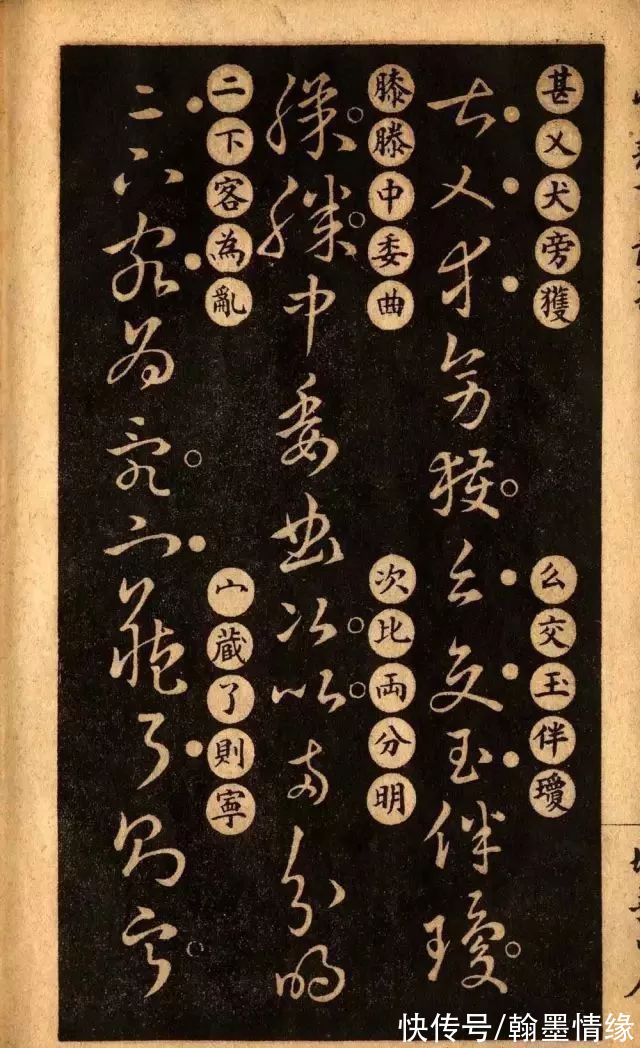 甚㐅犬旁獲
么交玉伴瓊
膝滕中委曲
次比兩分明
二下客為亂
宀藏了則寧
快传号/翰墨情缘